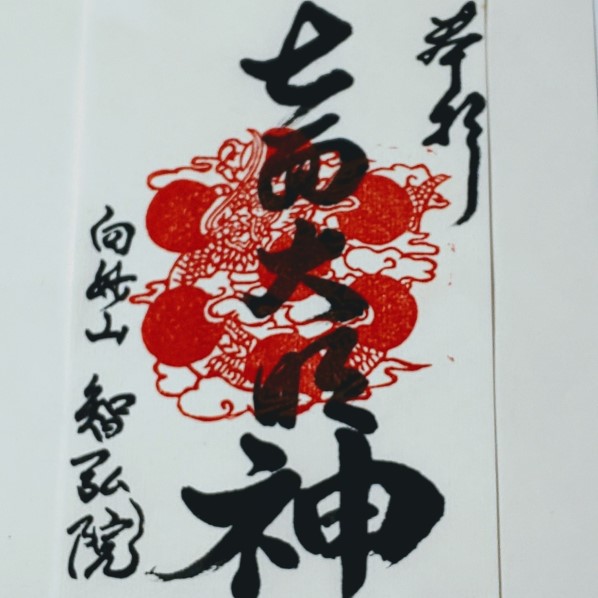 奉拝
七面大明神
向妙山 智弘院